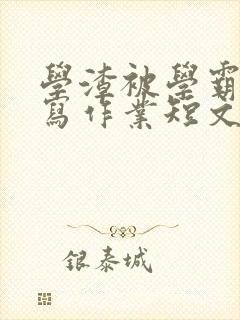 學渣被學霸
寫作業短文
銀泰城